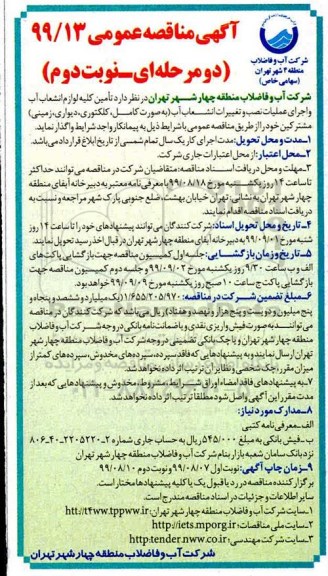 آگهی مناقصه عمومی ۹۹/۱۳
(دو مرحله‌ای-نوبت دوم)
شرکت آب و فاضلاب
منطقه ۴ شهر تهران
(سهامی خاص)
شرکت آب و فاضلاب منطقه چهار شـهر تهران در نظر دارد تأمین کلیه لوازم انشعاب آب
و اجرای عملیات نصب و تغییرات انشـعاب آب (به صورت کامـل، کلکتوری، دیواری، زمینی)
مشترکین خود را از طریق مناقصه عمومی با شرایط ذیل به پیمانکار واجد شرایط واگذار نماید.
۱-مدت و محل تحویل: مدت اجرای کار یک سال تمام شمسی از تاریخ ابلاغ قرارداد می‌باشد.
۲-محل اعتبار: از محل اعتبارات جاری شرکت.
۳-مهلت و محل دریافت اسـناد مناقصه: متقاضیان شرکت در مناقصه می‌توانند حداکثر
تا ساعت ۱۴ روز یکشنبه مورخ ۹۹/۰۸/۱۸ با معرفی‌نامه معتبر به دبیرخانه آبفای منطقه
چهار شهر تهران به نشانی: تهران خیابان بهشت، ضلع جنوبی پارک شهر مراجعه و نسبت به
دریافت اسناد مناقصه اقدام نمایند.
۴-تاریخ و محل تحویل اسناد: شرکت‌کنندگان می‌توانند پیشنهادهای خود را تا ساعت ۱۴ روز
شنبه مورخ ۹۹/۰۹/۰۱ به دبیرخانه آبفای منطقه چهار شهر تهران در قبال اخذ رسید تحویل نمایند.
۵-تاریخ و زمان بازگشـایی: جلسه اول کمیسیون مناقصه جهت بازگشایی پاکت‌های
الف و ب ساعت ۹/۳۰ روز یکشنبه مورخ ۹۹/۰۹/۰۲ و جلسه دوم کمیسیون مناقصه جهت
بازگشایی پاکت ج ساعت ۱۰ صبح روز یکشنبه مورخ ۹۹/۰۹/۰۹ خواهد بود.
۶-مبلغ تضمین شرکت در مناقصه: ۱/۶۵۵/۲۰۵/۹۷۰ (یک میلیارد و ششصد و پنجاه و
پنج میلیون و دویست و پنج هزار و نهصد و هفتاد) ریال می‌باشد که شرکت‌کنندگان در مناقصه
می‌توانند به صورت فیش واریزی نقدی و یا ضمانت‌نامه بانکی در وجه شــرکت آب و فاضلاب
منطقه چهار شهر تهران و یا چک بانکی تضمینی در وجه شرکت آب و فاضلاب منطقه چهار شهر
تهران ارسال نمایند و به پیشنهادهایی که فاقد سپرده، سپرده‌های مخدوش، سپرده‌های کمتر از
میزان مقرر، چک شخصی و نظایر آن ترتیب اثر داده نخواهد شد.
۷-به پیشنهادهای فاقد امضاء اوراق شـرایط، مشروط، مخدوش و پیشنهادهایی که بعد از
مدت مقرر این آگهی واصل شود مطلقاً ترتیب اثر داده نخواهد شد.
۸-مدارک مورد نیاز:
الف-معرفی‌نامه کتبی
ب-فیش بانکی به مبلغ ۵۴۵/۰۰۰ ریال به حساب جاری شماره ۲-۲۲۰۵۲۲۰-۴۰-۸۰۶
نزد بانک سامان شعبه بازار بنام شرکت آب و فاضلاب منطقه چهار شهر تهران
۹-زمان چاپ آگهی: نوبت اول ۹۹/۰۸/۰۷ و نوبت دوم ۹۹/۰۸/۱۰
برگزارکننده مناقصه در رد یا قبول یک یا کلیه پیشنهادها مختار است.
سایر اطلاعات و جزئیات در اسناد مناقصه مندرج است.
۱-سایت شرکت آب و فاضلاب منطقه چهار شهر تهران: htt://t4ww.tppww.ir
۲-سایت ملی مناقصات: http://iets.mporg.ir
۳-سایت شرکت مهندسی: http:tender.nww.co.ir
شرکت آب و فاضلاب منطقه چهار شهر تهران